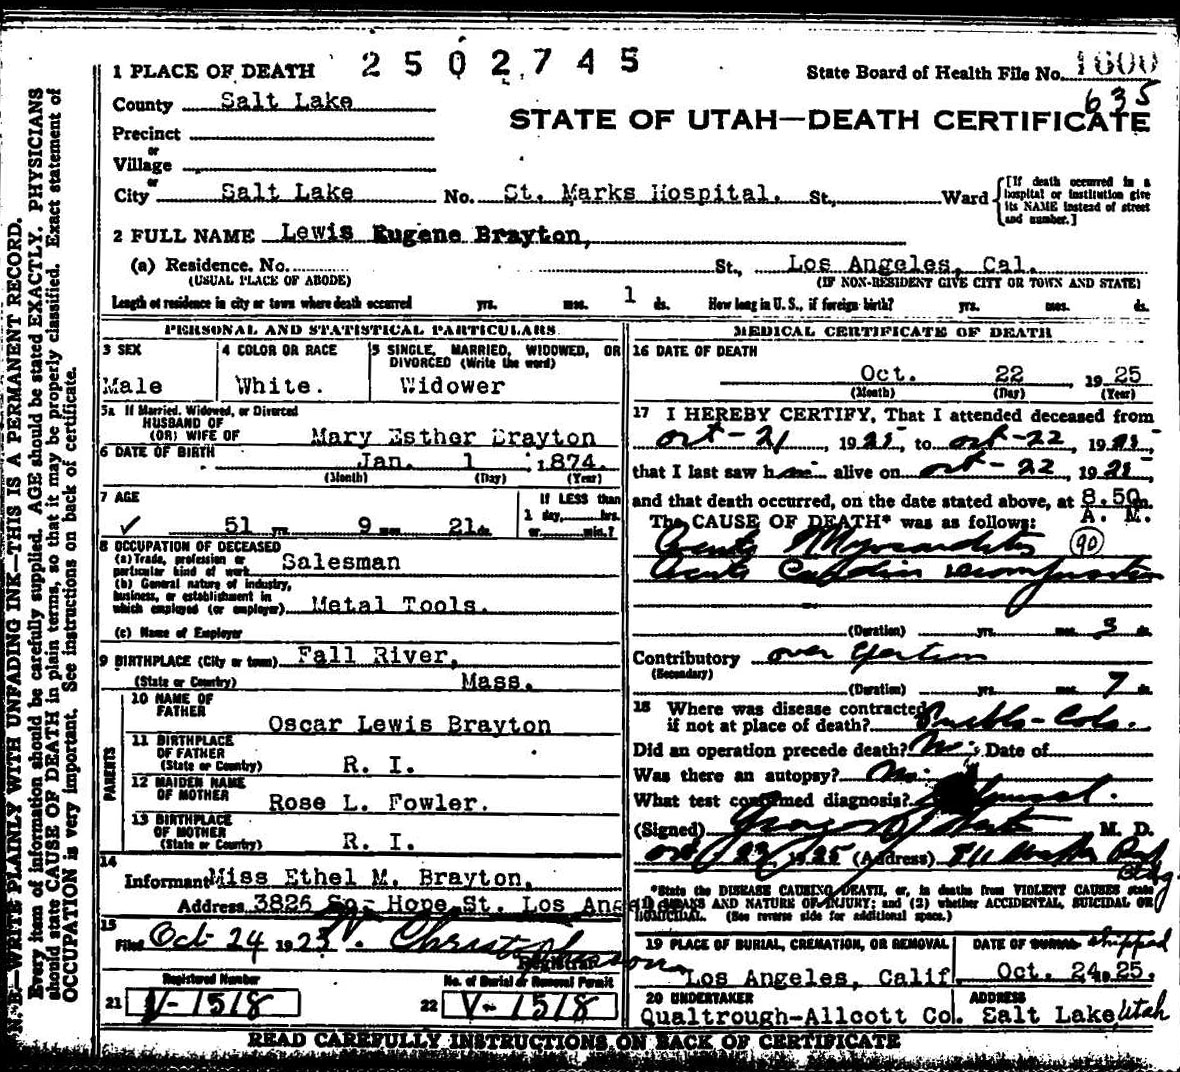 1 PLACE OF DEATH 2502745 State Board of Health File No. 1600
635
County Salt Lake
STATE OF UTAH—DEATH CERTIFICATE
Precinct
or
Village
or
City Salt Lake No. St. Marks Hospital. St., Ward [If death occurred in a hospital or institution give its NAME instead of street and number.]
2 FULL NAME Lewis Eugene Brayton,
(a) Residence. No. St., Los Angeles, Cal.
(USUAL PLACE OF ABODE) (IF NON-RESIDENT GIVE CITY OR TOWN AND STATE)
Length of residence in city or town where death occurred yrs. mos. 1 ds. How long in U. S., if foreign birth? yrs. mos. ds.
PERSONAL AND STATISTICAL PARTICULARS
3 SEX 4 COLOR OR RACE 5 SINGLE, MARRIED, WIDOWED, OR DIVORCED (Write the word)
Male White. Widower
5a If Married, Widowed, or Divorced
HUSBAND OF
(OR) WIFE OF Mary Esther Brayton
6 DATE OF BIRTH Jan. 1 , 1874.
(Month) (Day) (Year)
7 AGE If LESS than
1 day, hrs.
51 yrs. 9 mos. 21 ds. or min.?
8 OCCUPATION OF DECEASED
(a) Trade, profession or
particular kind of work Salesman
(b) General nature of industry,
business, or establishment in
which employed (or employer) Metal Tools.
(c) Name of Employer
9 BIRTHPLACE (City or town) Fall River,
(State or Country) Mass.
PARENTS
10 NAME OF
FATHER
Oscar Lewis Brayton
11 BIRTHPLACE
OF FATHER
(State or Country) R. I.
12 MAIDEN NAME
OF MOTHER
Rose L. Fowler.
13 BIRTHPLACE
OF MOTHER
(State or Country) R. I.
14
Informant Miss Ethel M. Brayton,
Address 3826 So- Hope St. Los Angel
15
Filed Oct 24 1925
Registrar
Registered Number No. of Burial or Removal Permit
21 V-1518 22 V-1518
MEDICAL CERTIFICATE OF DEATH
16 DATE OF DEATH
Oct. 22 , 1925
(Month) (Day) (Year)
17 I HEREBY CERTIFY, That I attended deceased from
Oct-21, 1925 to Oct-22, 1925,
that I last saw him alive on Oct-22, 1925,
and that death occurred, on the date stated above, at 8.50 m.
A. M.
The CAUSE OF DEATH* was as follows:
Acute Myocarditis 90
Acute Cardiac decompensation
(Duration) yrs. mos. 3 ds.
Contributory over exertion
(Secondary)
(Duration) yrs. mos. 7 ds.
18 Where was disease contracted
if not at place of death? Pueblo-Colo.
Did an operation precede death? No. Date of
Was there an autopsy? No.
What test confirmed diagnosis?
(Signed) M. D.
Oct 23, 1925 (Address)
*State the DISEASE CAUSING DEATH, or, in deaths from VIOLENT CAUSES state
MEANS AND NATURE OF INJURY; and (2) whether ACCIDENTAL, SUICIDAL OR
HOMICIDAL. (See reverse side for additional space.)
19 PLACE OF BURIAL, CREMATION, OR REMOVAL DATE OF BURIAL shipped
Los Angeles, Calif. Oct. 24, 1925.
20 UNDERTAKER ADDRESS
Qualtrough-Allcott Co. Salt Lake, Utah
READ CAREFULLY INSTRUCTIONS ON BACK OF CERTIFICATE
N. B.—WRITE PLAINLY WITH UNFADING INK—THIS IS A PERMANENT RECORD.
Every item of information should be carefully supplied. AGE should be stated EXACTLY. PHYSICIANS
should state CAUSE OF DEATH in plain terms, so that it may be properly classified. Exact statement of
OCCUPATION is very important. See instructions on back of certificate.